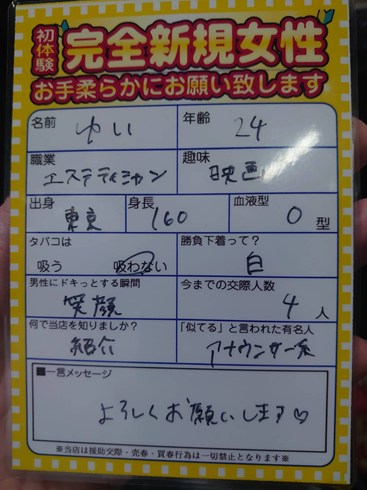 初体験 完全新規女性
お手柔らかにお願い致します
名前 ゆい 年齢 24
職業 エステティシャン 趣味 映画
出身 東京 身長 160 血液型 O 型
タバコは 吸う 吸わない 勝負下着って? 白
男性にドキっとする瞬間 笑顔 今までの交際人数 4 人
何で当店を知りましたか? 紹介 「似てる」と言われた有名人 アナウンサー系
■一言メッセージ
よろしくお願いします♡
※当店は援助交際・売春・買春行為は一切禁止となります※